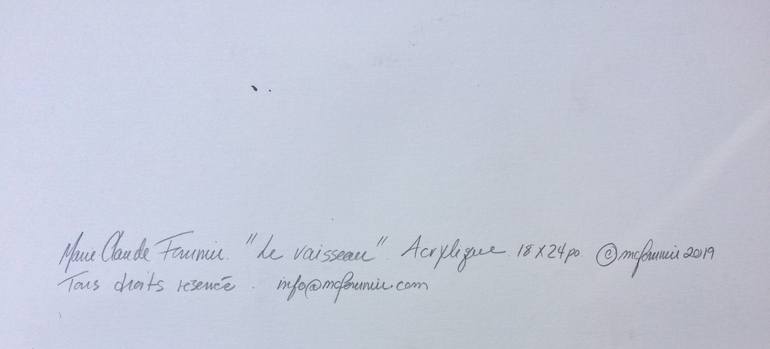 Marie Claude Fournier. "Le vaisseau". Acrylique 18 x 24 po © mcfournier 2019
Tous droits reservé. info@mcfournier.com